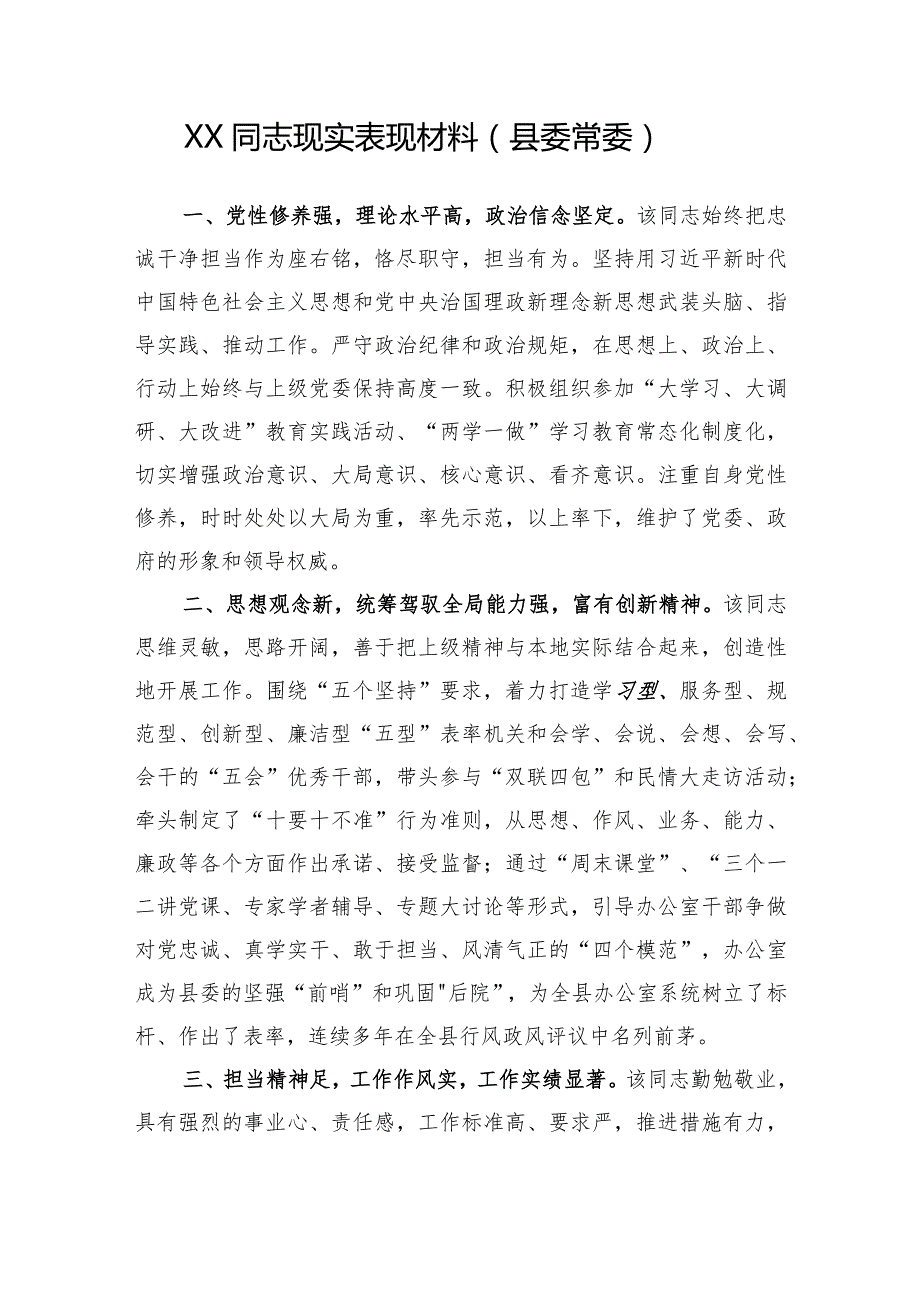 XX同志现实表现材料（县委常委）
一、党性修养强，理论水平高，政治信念坚定。该同志始终把忠
诚干净担当作为座右铭，恪尽职守，担当有为。坚持用习近平新时代
中国特色社会主义思想和党中央治国理政新理念新思想武装头脑、指
导实践、推动工作。严守政治纪律和政治规矩，在思想上、政治上、
行动上始终与上级党委保持高度一致。积极组织参加“大学习、大调
研、大改进”教育实践活动、“两学一做”学习教育常态化制度化，
切实增强政治意识、大局意识、核心意识、看齐意识。注重自身党性
修养，时时处处以大局为重，率先示范，以上率下，维护了党委、政
府的形象和领导权威。
二、思想观念新，统筹驾驭全局能力强，富有创新精神。该同志
思维灵敏，思路开阔，善于把上级精神与本地实际结合起来，创造性
地开展工作。围绕“五个坚持”要求，着力打造学习型、服务型、规
范型、创新型、廉洁型“五型”表率机关和会学、会说、会想、会写、
会干的“五会”优秀干部，带头参与“双联四包”和民情大走访活动；
牵头制定了“十要十不准”行为准则，从思想、作风、业务、能力、
廉政等各个方面作出承诺、接受监督；通过“周末课堂”、“三个一
二讲党课、专家学者辅导、专题大讨论等形式，引导办公室干部争做
对党忠诚、真学实干、敢于担当、风清气正的“四个模范”，办公室
成为县委的坚强“前哨”和巩固"后院”，为全县办公室系统树立了标
杆、作出了表率，连续多年在全县行风政风评议中名列前茅。
三、担当精神足，工作作风实，工作实绩显著。该同志勤勉敬业，
具有强烈的事业心、责任感，工作标准高、要求严，推进措施有力，